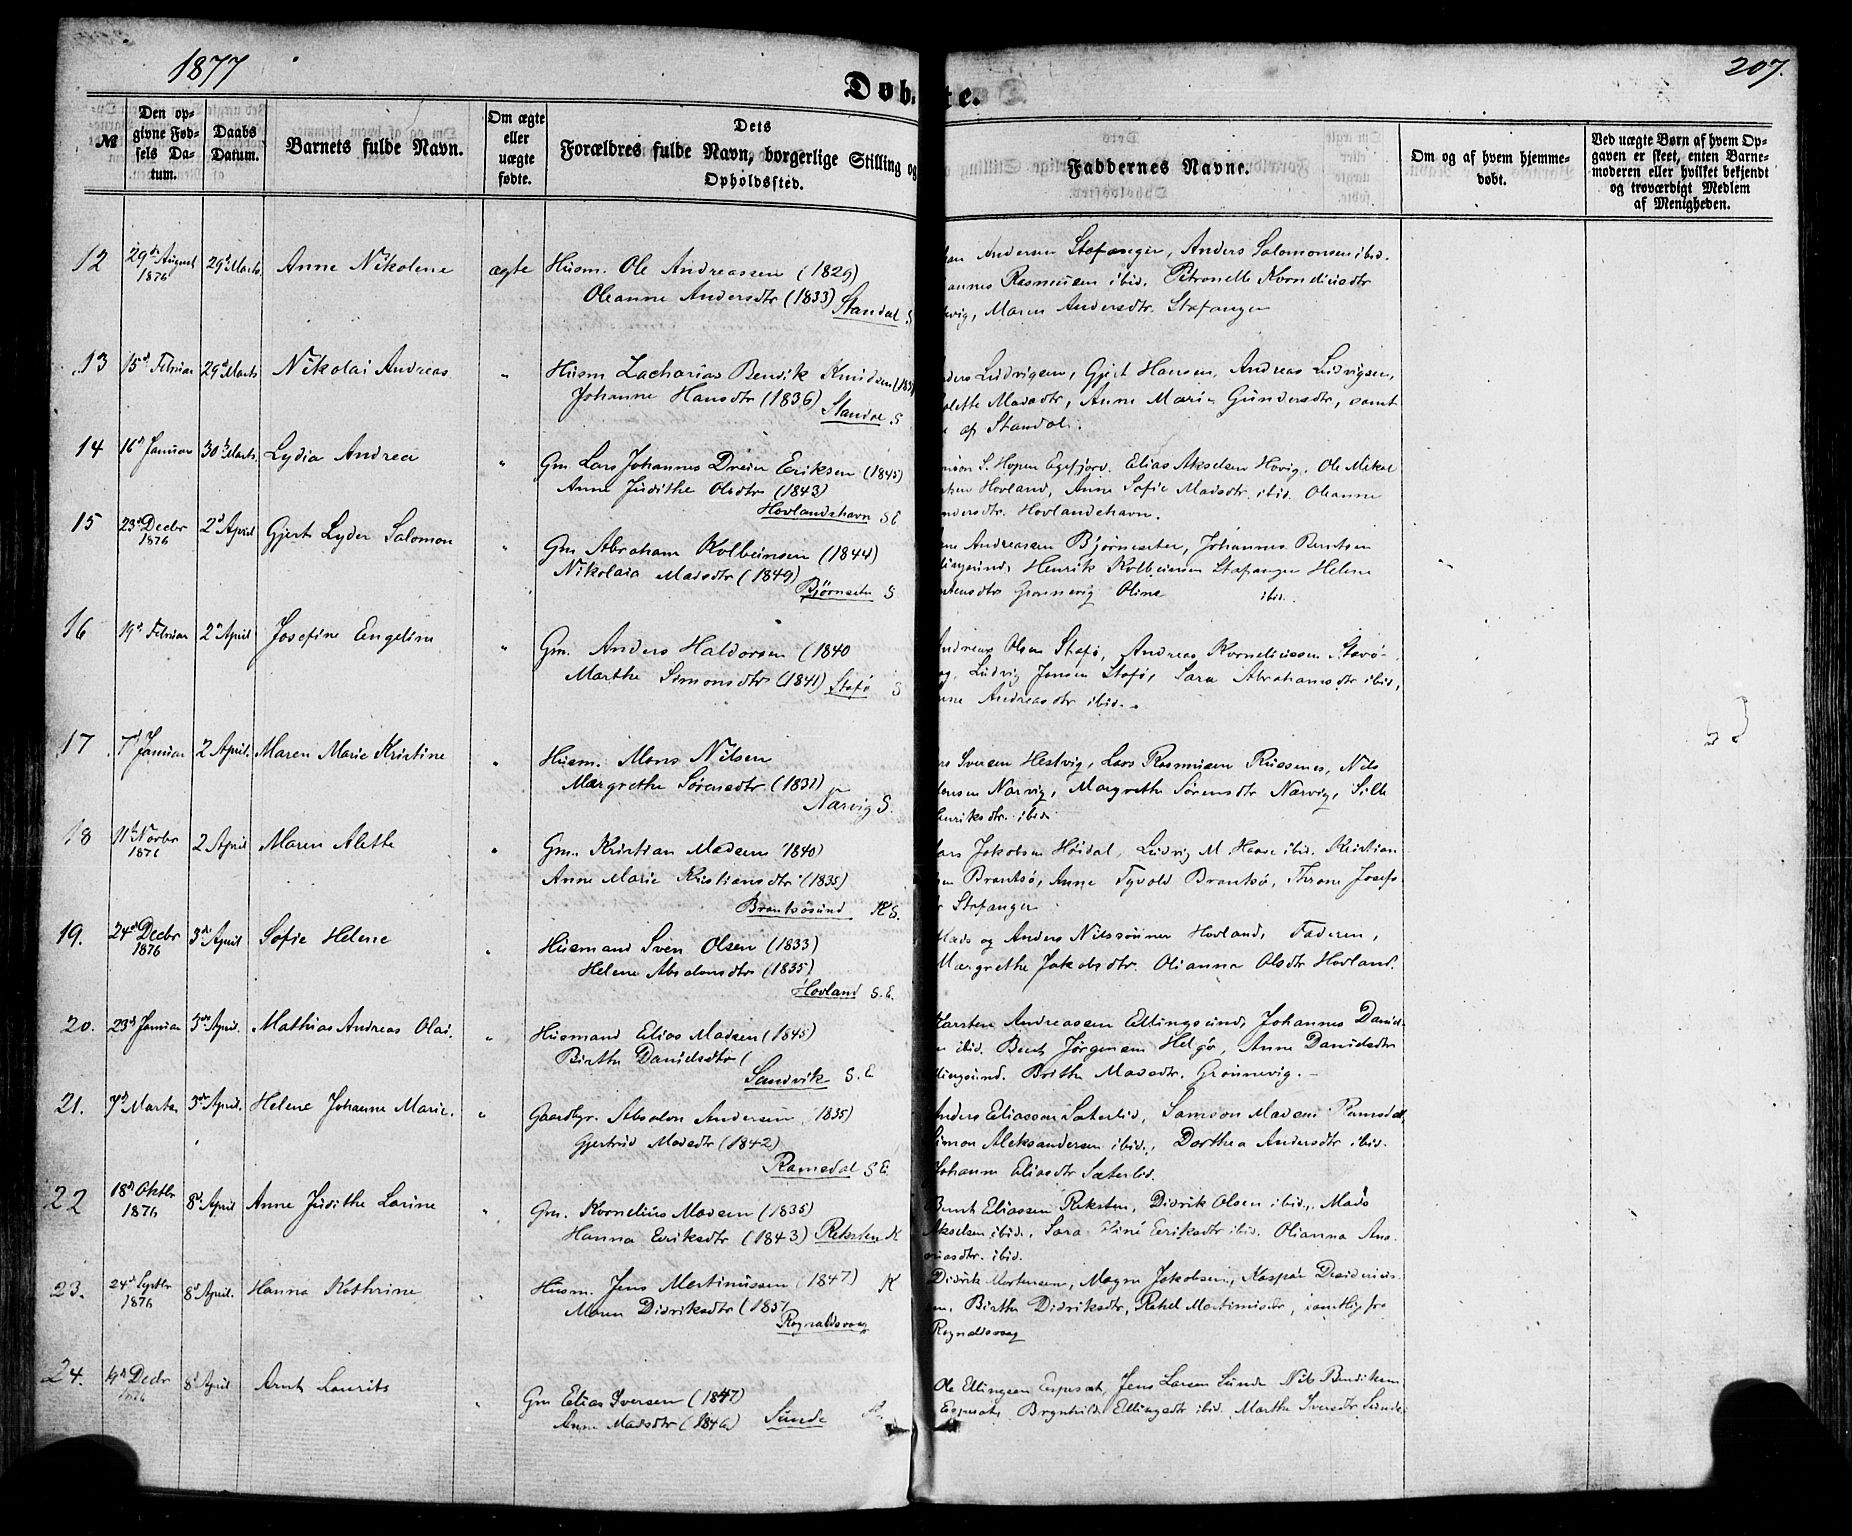 1877
207.
Døbte.
№
Den opgivne Fødsels Datum.
Daabs Datum.
Barnets fulde Navn.
Om ægte eller uægte fødte.
Dets Forældres fulde Navn, borgerlige Stilling og Opholdssted.
Faddernes Navne.
Om og af hvem hjemmedøbt.
Ved uægte Børn af hvem Opgaven er skeet, enten Barnemoderen eller hvilket bekjendt og troværdigt Medlem af Menigheden.
12 29de August 1876 29de Marts Anne Nikolene ægte Husm. Ole Andreassen (1829)
Oleanne Andersdtr (1833) Standal S
Andersen Stafanger, Anders Salomonsen ibid.
Rasmusen ibid. Petronelle Korneliusdtr
Maren Andersdtr. Stafanger
13 15de Februar 29de Marts Nikolai Andreas " Husm Zacharias Bendik Knudsen
Johanne Hansdtr (1836) Standal S
Ludvigsen, Gjert Hansen, Andreas Ludvigsen,
Madsdtr, Anne Marie Gundersdtr, samt
af Standal.
14 16de Januar 30te Marts. Lydia Andrea " Gm. Lars Johannes Dreier Eriksen (1845)
Anne Judithe Olsdtr (1843)
Hovlandshavn S E
S. Hopen Egefjord. Elias Akselsen Hovig. Ole Mikal
Hovland, Anne Sofie Madsdtr. ibid. Oleanne
Hovlandshavn.
15 23de Decbr 1876 2den April Gjert Lyder Salomon " Gm. Abraham Kolbeinsen (1844)
Nikolaia Madsdtr (1849)
Bjørnseter S
Andreasen Bjørneseter, Johannes Bentsen
Henrik Kolbeinsen Stafanger Helene
Grønnevig Oline ibid.
16 19de Februar 2den April Josefine Engeline " Gm. Anders Haldorsen (1840
Marthe Simonsdtr (1841) Stafø S
Andreas Olsen Stafø, Andreas Kornelius­sen
Ludvig Jansen Stafø, Sara Abrahamsdtr ibid,
Andreasdtr ibid.
17 7de Januar 2 April. Maren Marie Kristine " Husm. Mons Nilsen
Margrethe Sørensdtr (1831)
Narvig S.
Iversen Hestvig, Lars Rasmusen Russenes, Nils
Narvig, Margrethe Sørensdtr Narvig, Sille
ibid.
18 11te Novbr 1876 2 April Maren Alette " Gm. Kristian Madsen (1840)
Anne Marie Kristiansdtr (1835)
Brantsøsund K S.
Lars Jakobsen Høidal, Ludvig M. Haave ibid. Kristian
Brantsø, Anne Tyvold Brantsø, Throne Josefs
Stafanger
19. 24de Decbr 1876 3die April Sofie Helene " Husmand Sven Olsen (1833)
Helene Absalonsdtr (1835)
Hovland S. E.
Mads og Anders Nilssønner Hovland, Faderen,
Margrethe Jakobsdtr. Olianna Olsdtr Hovland.
20. 23de Januar 3die April. Mathias Andreas Olai. " Husmand Elias Madsen (1845)
Birthe Danielsdtr (
Sandvik S. E
Karsten Andreassen Ellingsund, Johannes Daniel-
ibid. Bent Jørgensen Helgø, Anne Danielsdtr
Ellingsund. Brithe Madsdtr. Grønnevig.
21. 7de Marts 3die April. Helene Johanne Marie. " Gaardbr. Absalon Andersen (1835)
Gjertrud Madsdtr (1842)
Ramsdal S E.
Anders Eliassen Sæterlid, Samson Madsen Ramsdal,
Simon Aleksandersen ibid., Dorthea Andersdtr ibid.
Johanne Eliasdtr Sæterlid.
22 18de Oktbr 1876 8de April Anne Judithe Larine " Gm. Kornelius Madsen (1835)
Hanna Eriksdtr (1843) Reksten K
Bent Eliassen Reksten, Didrik Olsen ibid., Mads
Akselsen ibid. Sara Eriksdtr ibid. Olianna
ibid.
23. 24de Septbr 1876 8de April. Hanna Kathrine " Husm. Jens Martinussen (1847) K
Maren Didriksdtr (1851
Rognaldsvaag
Didrik Mortensen, Magne Jakobsen, Kaspar Desideriu-
sen, Birthe Didriksdtr, Rakel Martinusdtr, samtlig fra
Rognaldsvaag
24. 19de Decbr 1876 8de April Arnt Laurits " Gm Elias Iversen (1847)
Anne Madsdtr (1846) Sunde
Ole Ellingsen Espesæt, Jens Larsen Sunde Nils Bendiksen
Espesæt, Brynhild Ellingsdtr ibid. Marthe Iversdtr Sunde